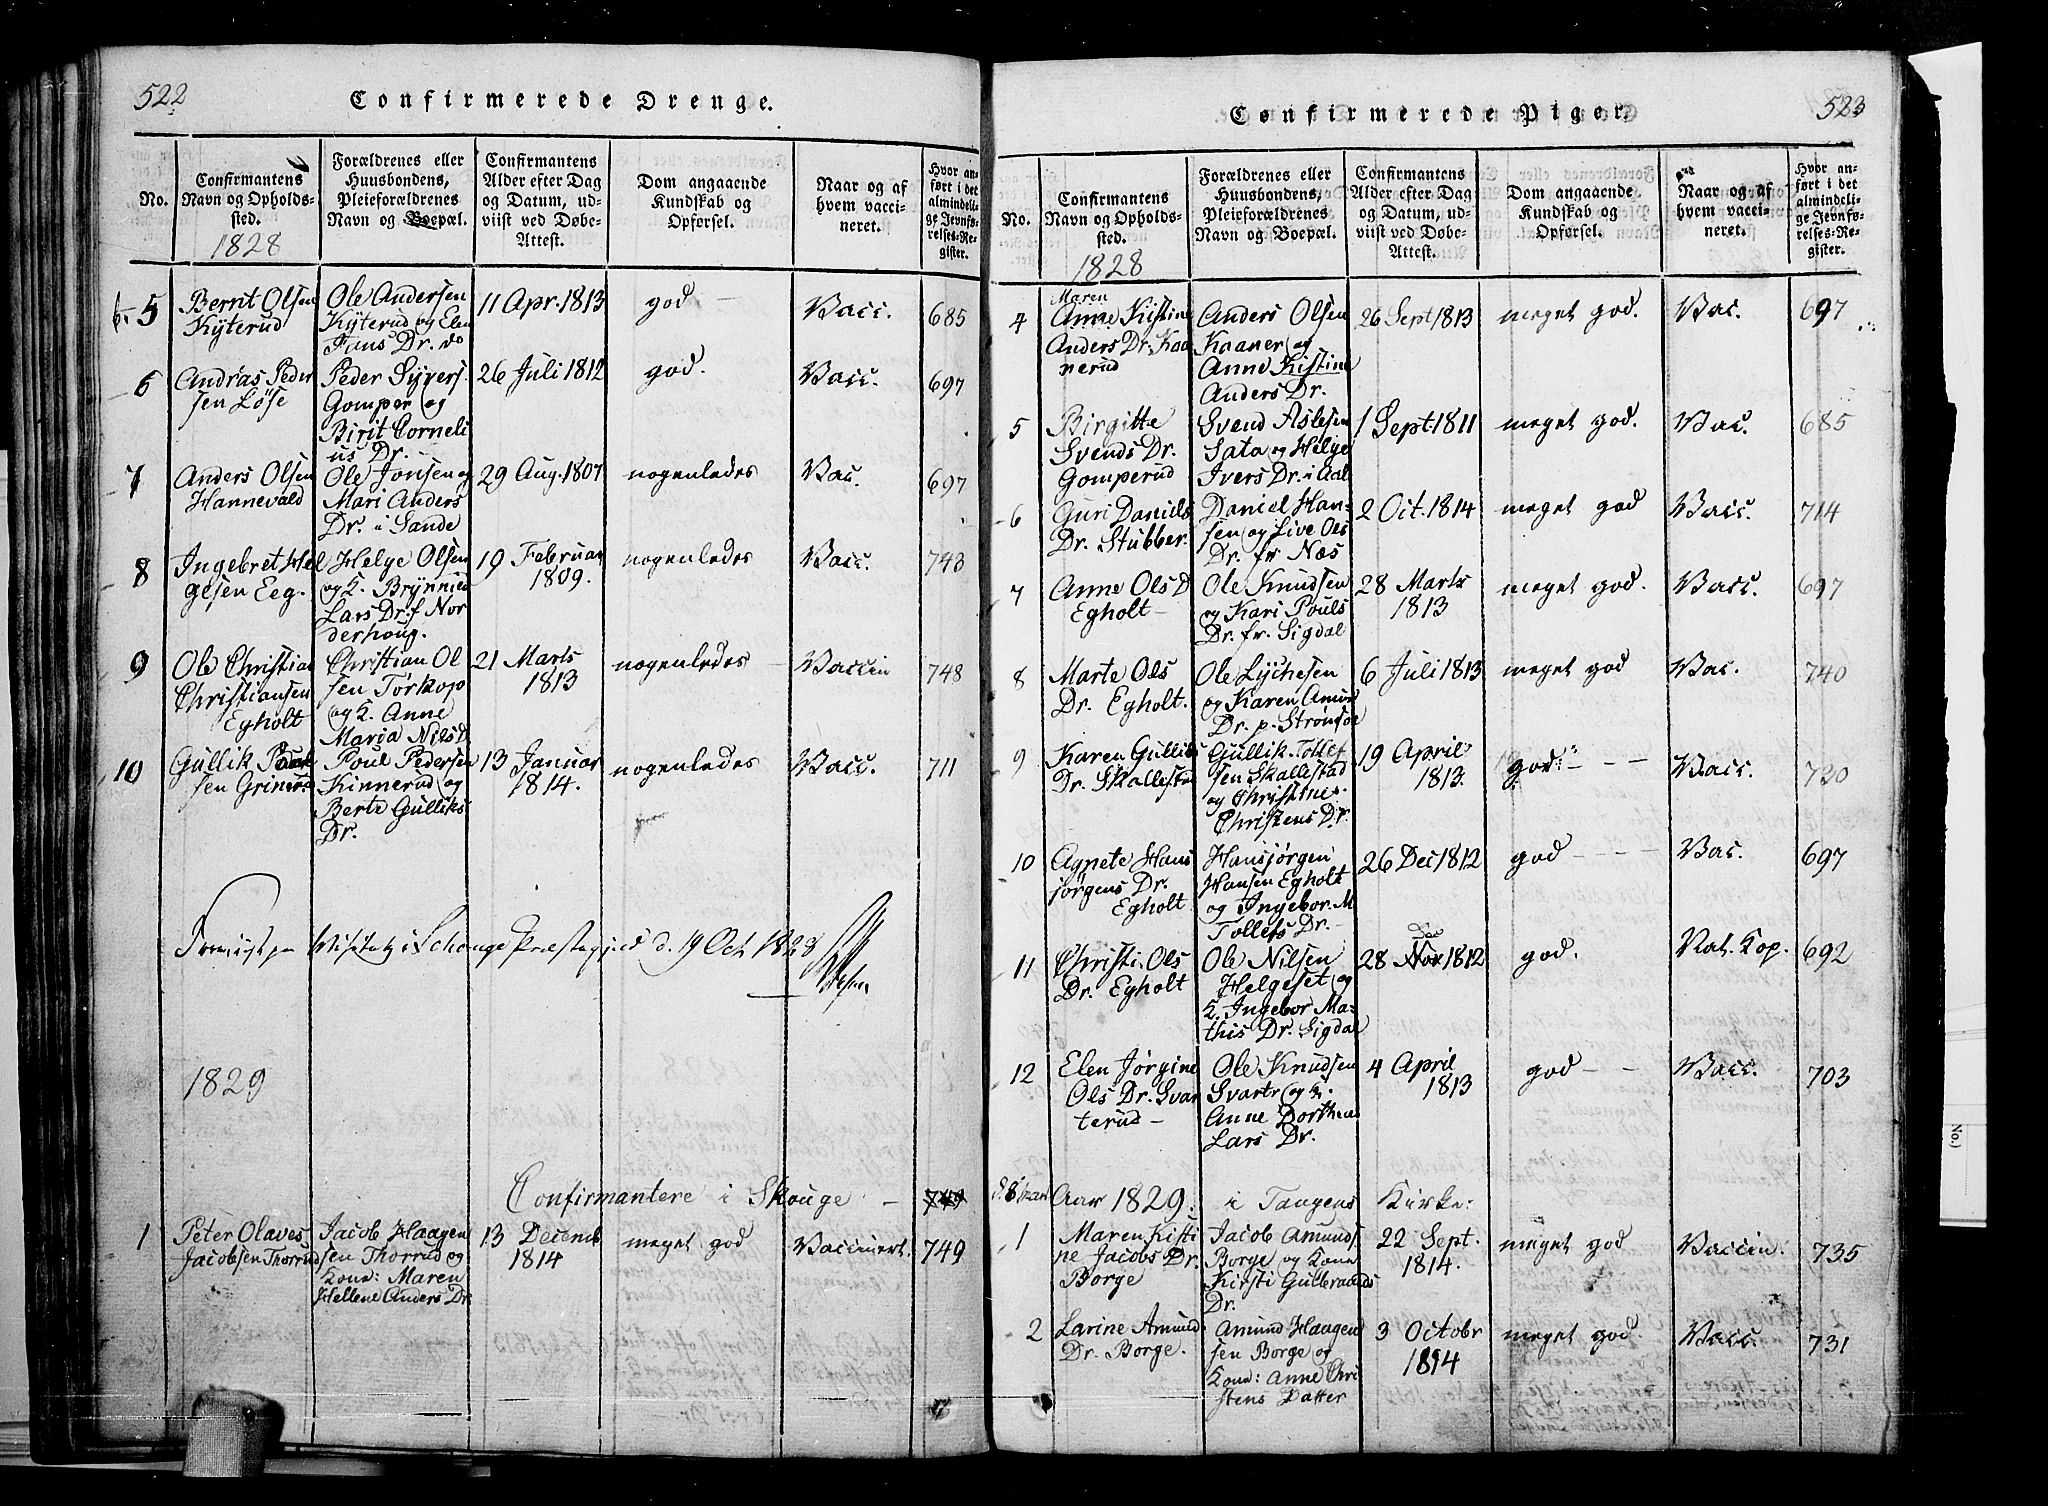 522
Confirmerede Drenge.
No.
Confirmantens Navn og Opholdssted.
1828
Forældrenes eller Huusbondens, Pleieforældrenes Navn og Boepæl.
Confirmantens Alder efter Dag og Datum, udviist ved Døbe-Attest.
Dom angaaende Kundskab og Opførsel.
Naar og af hvem vaccineret.
Hvor anført i det almindelige Jevnførelses-Register.
5
Berrit Olsen
Kÿterud
Ole Andersen
Kÿterud og Elen
Fans Dr. do
11 Apr. 1813
god
Vacc.
685
6
Andras Peder
sen Löse
Peder Syvers.
Gomper og
Birit Corneli
us Dr.
26 Juli 1812
god.
Vacc.
697
7
Anders Olsen
Hannevald
Ole Jonsen og
Mari Anders
Dr. i Sande
29 Aug. 1807
nogenledes
Vac.
697
8
Ingebret Hel
gesen Eeg.
Helge Olsen
og K. Brÿnnild
Lars Dr. f Nor
derhoug.
19 Februar
1809.
nogenledes
Vacc.
743
9
Ole Christian
Christiansen
Egholt
Christian Ol
sen Tørkop
og K. Anne
Maria Nils D
21 Marts
1813
nogenledes
Vaccin
748
10
Gullik
sen
Poul Pedersen
Kinnerud og
Berte Gulliks
Dr.
13 Januar
1814.
nogenledes
Vacc.
711
Fremvist paa Visitatz i Schouge Præstegjeld d. 19 Oct 1828
1829
Confirmantere i Skouge –
749
1
Peter Olaves
Jacobsen Thorrud
Jacob Haagen
sen Thorrud og
Kone: Maren
Hellene Anders Dr.
13 Decemb
1814
meget god
Vaccinert.
749
523
Confirmerede Piger.
No.
Confirmantens Navn og Opholdssted.
1828
Forældrenes eller Huusbondens, Pleieforældrenes Navn og Boepæl.
Confirmantens Alder efter Dag og Datum, udviist ved Døbe-Attest.
Dom angaaende Kundskab og Opførsel.
Naar og af hvem vaccineret.
Hvor anført i det almindelige Jevnførelses-Register.
4
Maren
Anne Kistine
Anders Dr. Kaa
nerud
Anders Olsen
Kaaner og
Anne Kistine
Anders Dr.
26 Sept 1813
meget god.
Vac.
697
5
Birgitte
Svends Dr.
Gomperud
Svend Aslesen
Sata og Helge
Ivers Dr. i Aal
1 Sept. 1811
meget god.
Vac.
685
6
Guri Daniels
Dr. Stubber.
Daniel Han-
sen og Live Ols
Dr. fr Næs
2 Oct. 1814
meget god
Vacc.
714
7
Anne Ols D
Egholt –
Ole Knudsen
og Kari Pouls
Dr. fr. Sigdal
28 Marts
1813
meget god.
Vacc.
697
8
Marte Ols
Dr. Egholt.
Ole Lychesen
og Karen Amun
Dr. p. Strömsö
6 Juli 1813
meget god
Vac.
740
9
Karen Gulliks
Dr. Skallestad
Gullik Tollef
sen Skallestad
og Christine
Christens Dr.
19 April
1813.
god. – – –
Vacc.
730
10
Agnete Hans
jörgens Dr.
Egholt
Hansjörgen
Hansen Egholt
og Ingebor. M
Tollefs Dr.
26 Dec 1812
god – – –
Vac.
697
11
Christi. Ols
Dr. Egholt
Ole Nilsen
Helgeset og
K. Ingebor Ma-
this Dr. Sigdal
Dec
28 Nov 1812
god.
Nat. Kop.
692
12
Elen Jørgine
Ols Dr. Svar
terud –
Ole Knudsen
Svartr og K.
Anne Dorthea
Lars Dr.
4 April
1813
god – –
Vacc.
703
Aar 1829. i Tangens Kirke:
1
Maren Kisti
ne Jacobs Dr.
Borge
Jacob Amunds
Borge og Kone
Kirsti Gulbrands
Dr.
22 Sept.
1814.
meget god
Vaccin.
735
2
Larine Amund
Dr. Borge.
Amund Haagen
sen Borge og
Kone: Anne Chri
stens Datter
3 Octobr
1814
meget god.
Vacc.
731
No.)